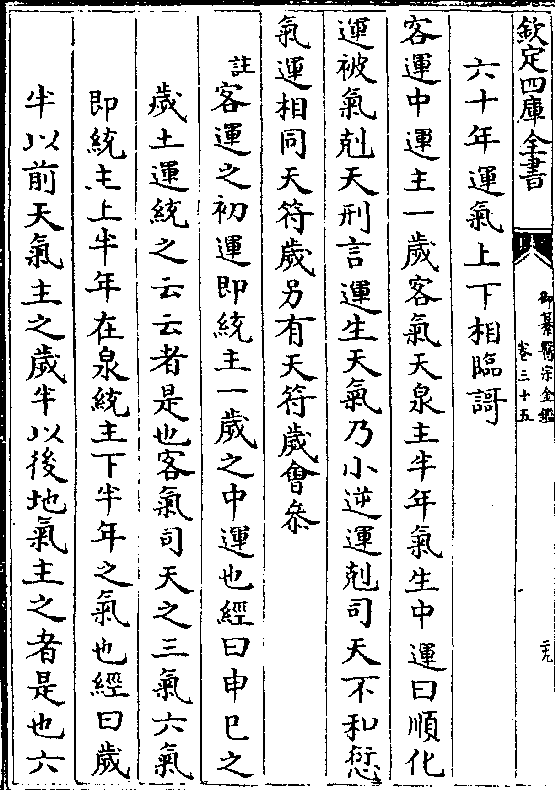 欽定四庫全書
御纂醫宗金鑑
卷三十五
二九
六十年運氣上下相臨謌
客運中運主一歲客氣天泉主半年氣生中運曰順化
運被氣剋天刑言運生天氣乃小逆運剋司天不和愆
氣運相同天符歲另有天符歲會叅
註客運之初運即統主一歲之中運也經曰申巳之
歲土運統之云云者是也客氣司天之三氣六氣
即統主上半年在泉統主下半年之氣也經曰歲
半以前天氣主之歲半以後地氣主之者是也六